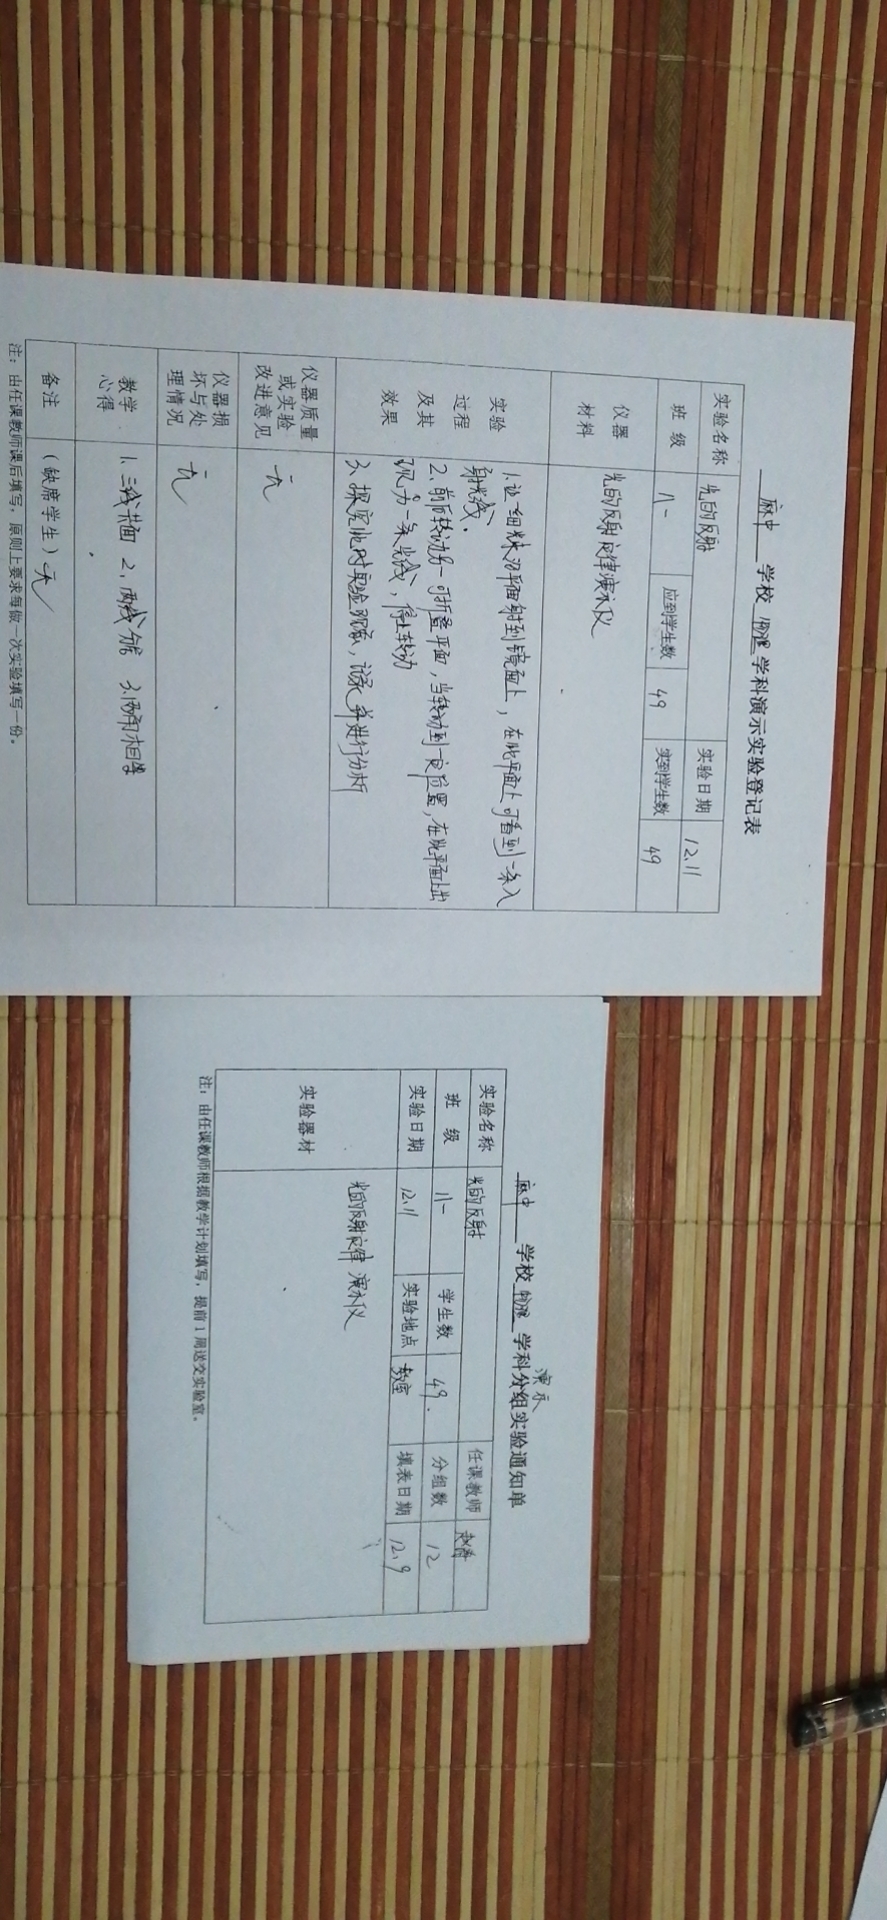 麻中 学校 物理 学科演示实验登记表
实验名称 光的反射 实验日期 12.11
班 级 八一 应到学生数 49 实到学生数 49
仪器材料 光的反射定律演示仪
实验过程及其效果
1.让一细光束沿平面射到镜面上，在此平面上可看到一条入
射光线.
2、前后转动另一可折叠平面，当转动到一定位置，在此平面上出
现另一条光线，停止转动
3、探究此时实验现象，记录并进行分析
仪器质量或实验改进意见 无
仪器损坏与处理情况 无
教学心得 1.三线共面 2、两线分居 3.两角相等
备注 （缺席学生）无
注：由任课教师课后填写，原则上要求每做一次实验填写一份。
演示
麻中 学校 物理 学科分组实验通知单
实验名称 光的反射 任课教师
班 级 八一 学生数 49. 分组数 12
实验日期 12.11 实验地点 教室 填表日期 12.9
实验器材 光的反射定律演示仪
注：由任课教师根据教学计划填写，提前1周送交实验室。